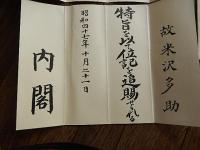 故米沢多助
特旨を以て位記を追賜せらる
昭和四十七年十月二十一日
内閣